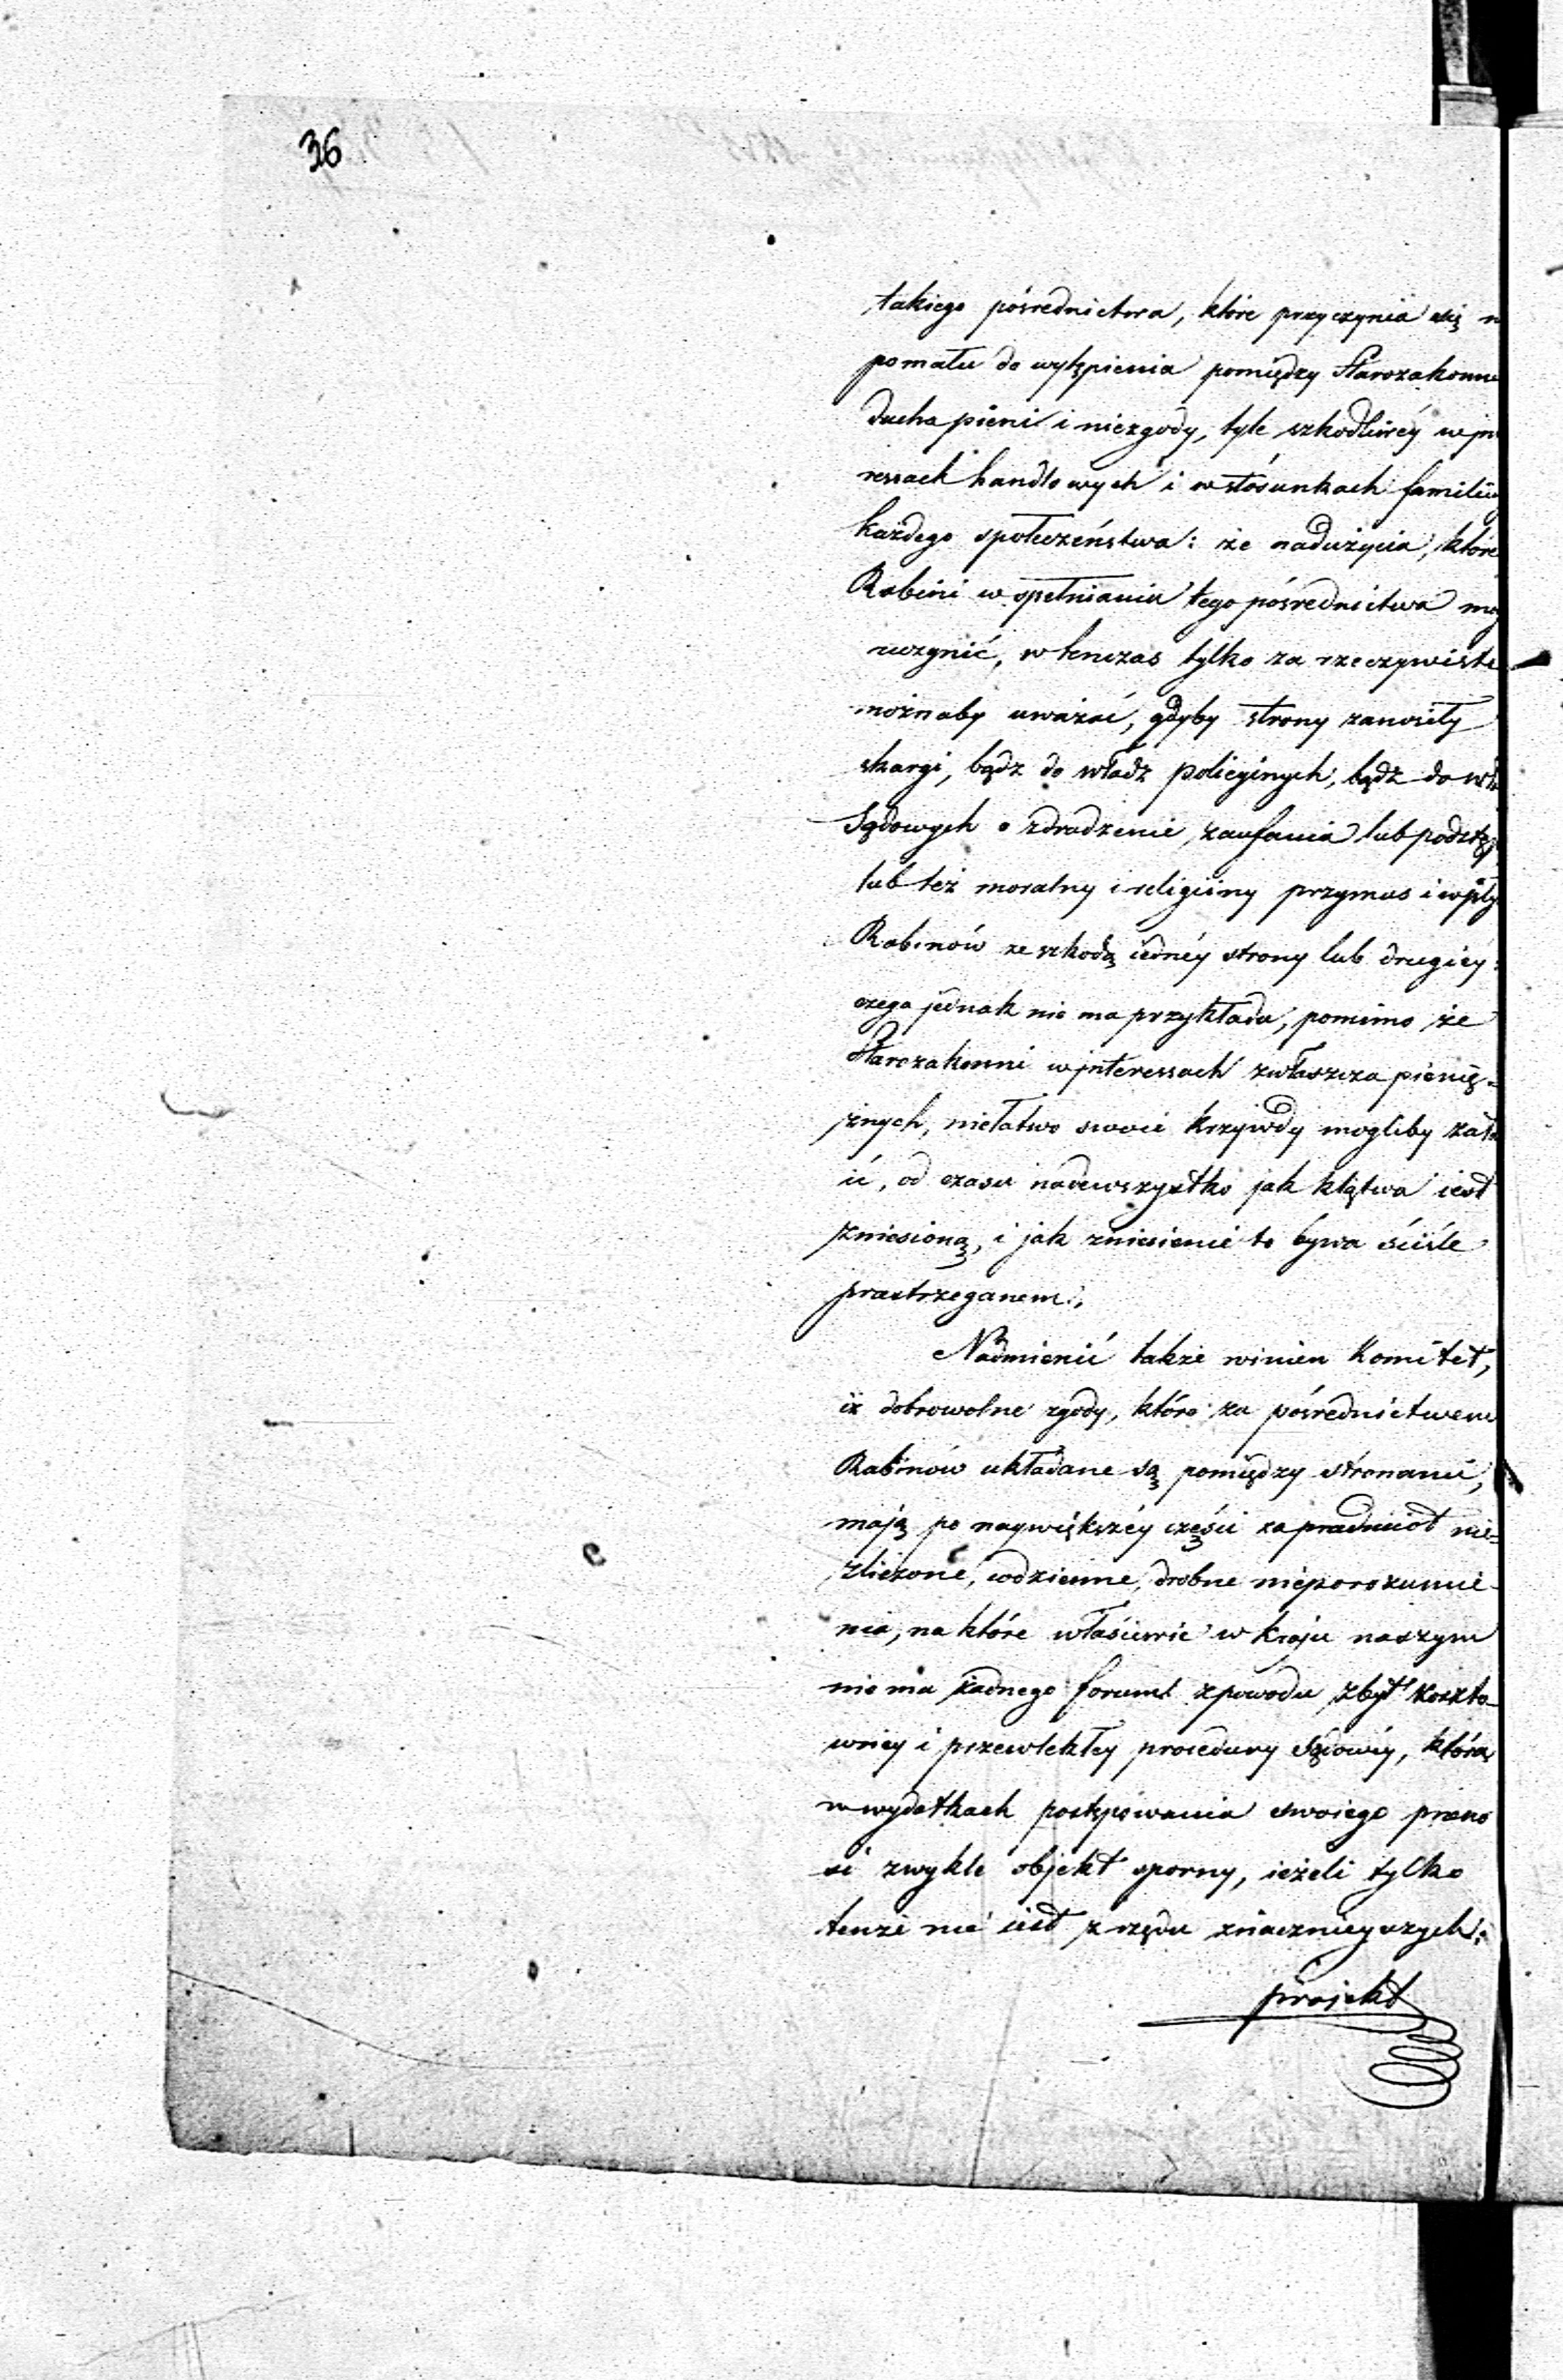 36
takiego pósrednictwa, które przyczynia się
pomału do wytępienia pomiędzy Starozakonne
ducha pieni i niezgody, tyle szkodliwéy w jn
ressach handlowych i w stósunkach familiy
każdego społeczeństwa: że nadużycia, które
Rabini w spełnianiu tego pósrednictwa mog
uczynić, wtenczas tylko za rzeczywiste
możnaby uważać, gdyby strony zanosiły
skargi, bądz do władz policyinych, bądz do wła
Sądowych o zdradzenie zaufania lub podstęp
lub też moralny i religiiny przymus i wpły
Rabinów ze szkodą iednéy strony lub drugiey:
czego jednak nie ma przykładu, pomimo że
Starozakonni w jnteressach zwłaszcza pienię-
żnych, niełatwo swoie krzywdy mogliby zata
ić, od czasu nadewszystko jak klątwa iest
zniesioną, i jak zniesienie to bywa ściśle
przestrzeganem.,
Nadmienić także winien Komitet,
iż dobrowolne zgody, które za pósrednictwem
Rabinów układane są pomiędzy stronami,
mają po naywiększéy części za przedmiot nie-
zliczone, codzienne, drobne nieporozumie-
nia, na które właściwie w kraju naszym
nie ma żadnego forum z powodu zbyt koszto-
wney i przewlekłey procedury Sądowéy, która
w wydatkach postępowania swoiego przeno
si zwykle objekt sporny, ieżeli tylko
tenże nie iest z rzędu znacznieyszych:
projekt